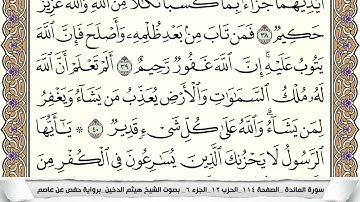 أَيْدِيَهُمَا جَزَآءَۢ بِمَا كَسَبَا نَكَـٰلًا مِّنَ ٱللَّهِۗ وَٱللَّهُ عَزِيزٌ
حَكِيمٌ ٣٨ فَمَن تَابَ مِنۢ بَعْدِ ظُلْمِهِۦ وَأَصْلَحَ فَإِنَّ ٱللَّهَ
يَتُوبُ عَلَيْهِۗ إِنَّ ٱللَّهَ غَفُورٌ رَّحِيمٌ ٣٩ أَلَمْ تَعْلَمْ أَنَّ ٱللَّهَ
لَهُۥ مُلْكُ ٱلسَّمَـٰوَٰتِ وَٱلْأَرْضِ يُعَذِّبُ مَن يَشَآءُ وَيَغْفِرُ
لِمَن يَشَآءُۗ وَٱللَّهُ عَلَىٰ كُلِّ شَىْءٍ قَدِيرٌ ٤٠ ۞ يَـٰٓأَيُّهَا
ٱلرَّسُولُ لَا يَحْزُنكَ ٱلَّذِينَ يُسَـٰرِعُونَ فِى ٱلْكُفْرِ مِنَ
سورة المائدة _ الصفحة ١١٤ _ الحزب ١٢ _ الجزء ٦ _ بصوت الشيخ هيثم الدخين _ برواية حفص عن عاصم